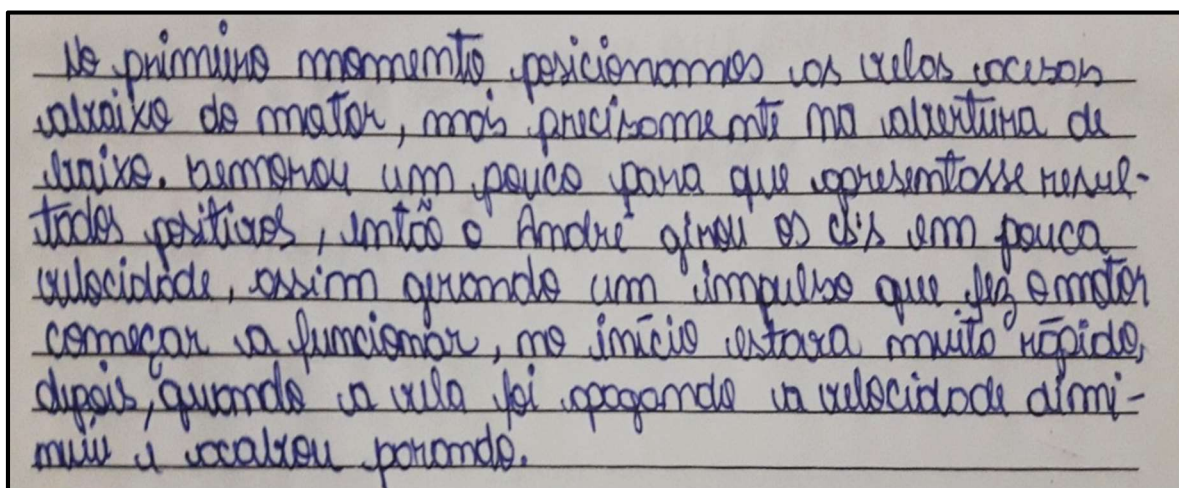 No primeiro momento posicionamos as velas acesas
abaixo do motor, mais precisamente na abertura de
baixo. Demorou um pouco para que apresentasse resul-
tados positivos, então o André girou os cd's em pouca
velocidade, assim gerando um impulso que fez o motor
começar a funcionar, no início estava muito rápido,
depois, quando a vela foi apagando a velocidade dimi-
nuiu e acabou parando.